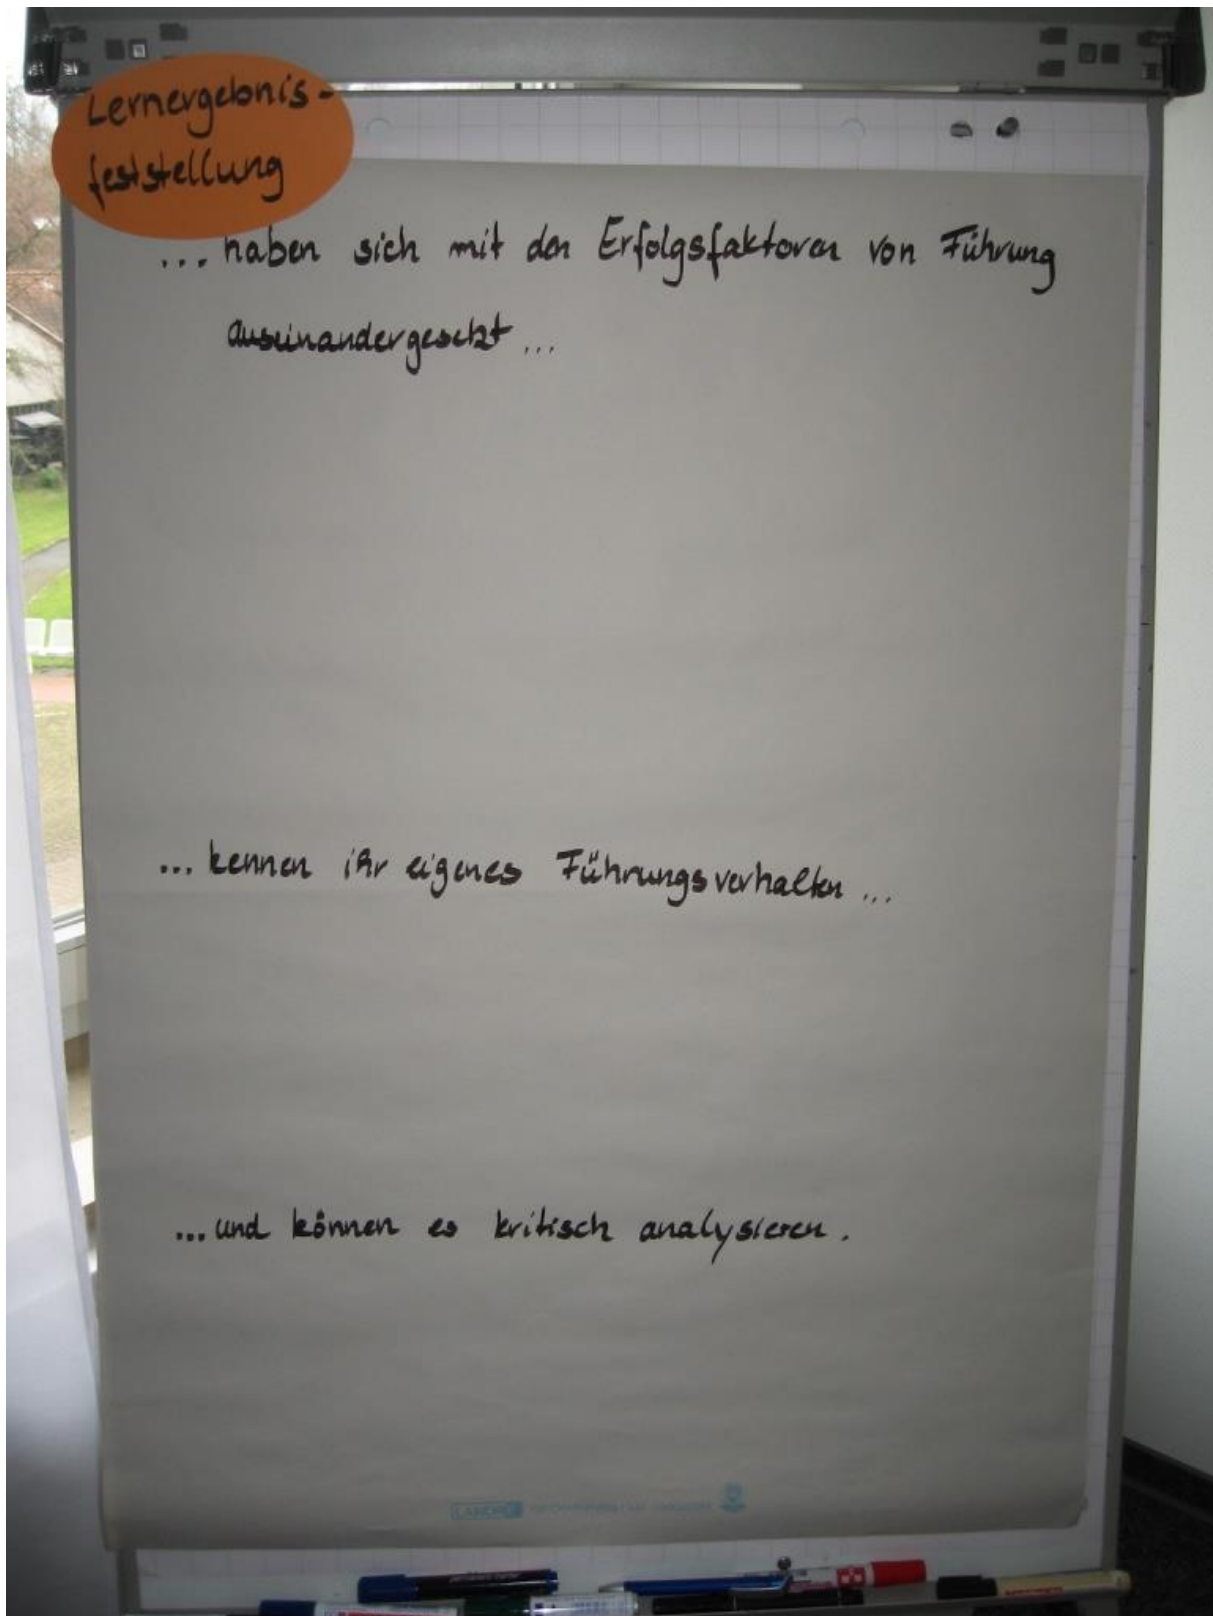 Lernergebnis-
feststellung
... haben sich mit den Erfolgsfaktoren von Führung
auseinandergesetzt ...
... kennen ihr eigenes Führungsverhalten ...
... und können es kritisch analysieren.